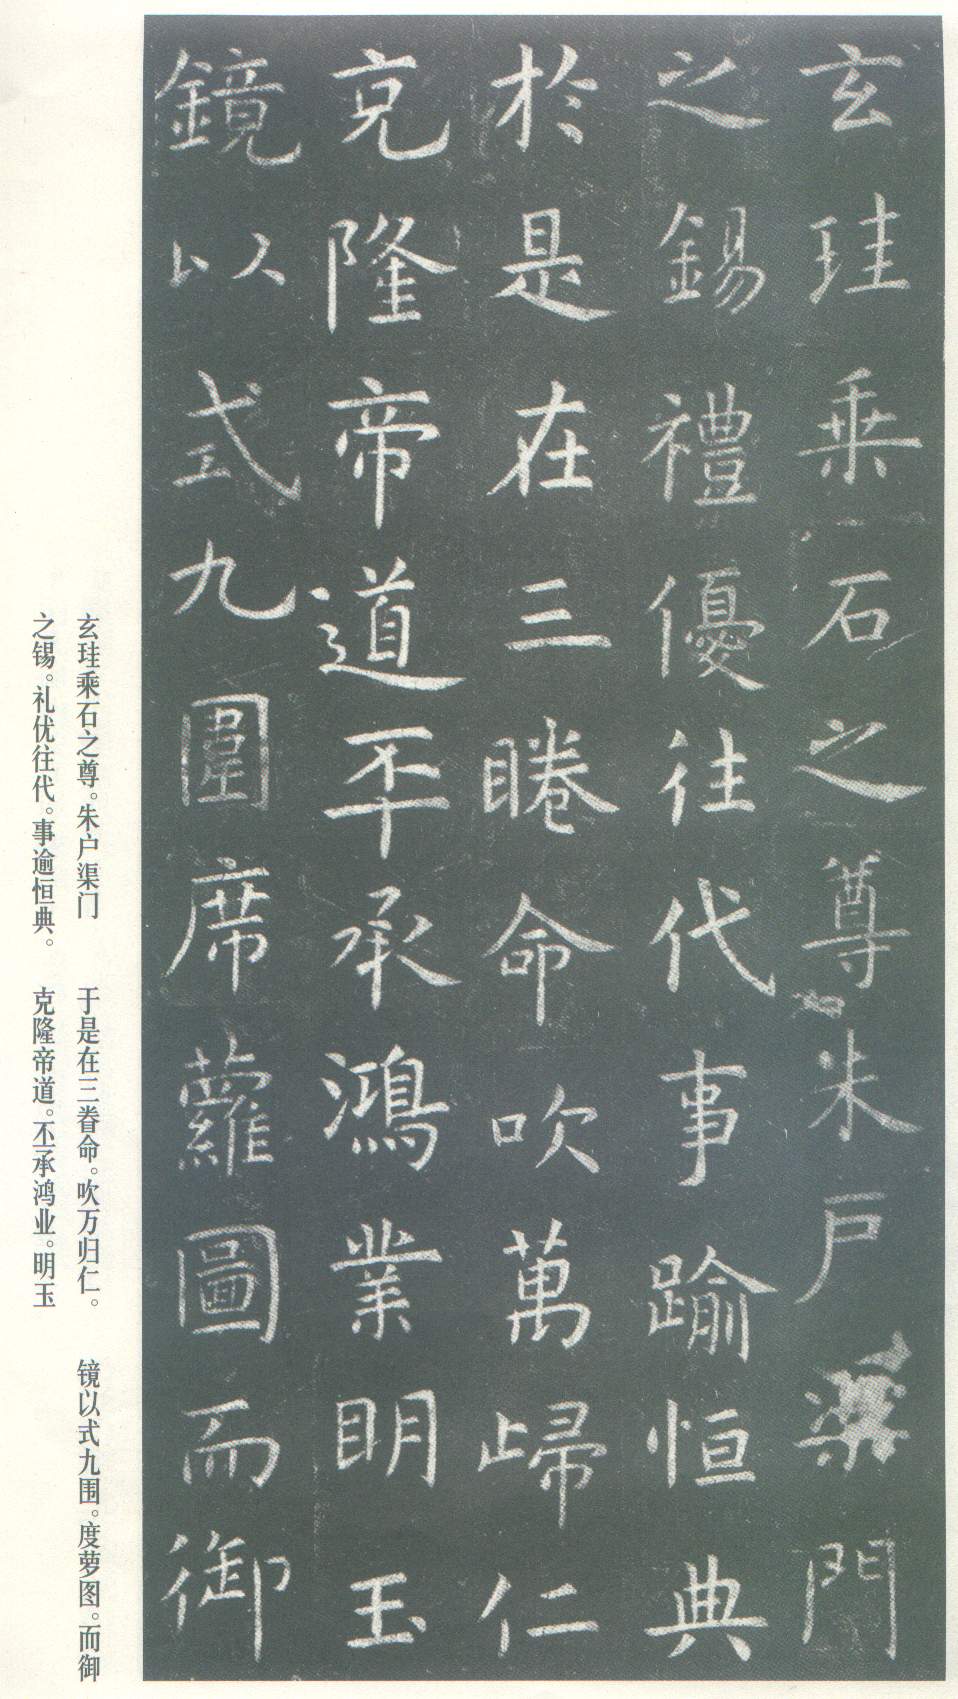 玄珪乗石之尊朱戸渠門
之錫禮優往代事踰恒典
於是在三睠命吹萬歸仁
克隆帝道丕承鴻業明玉
鏡以式九圍席蘿圖而御
玄珪乘石之尊。朱户渠门
之锡。礼优往代。事逾恒典。
于是在三眷命。吹万归仁。
克隆帝道。丕承鸿业。明玉
镜以式九围。度萝图。而御